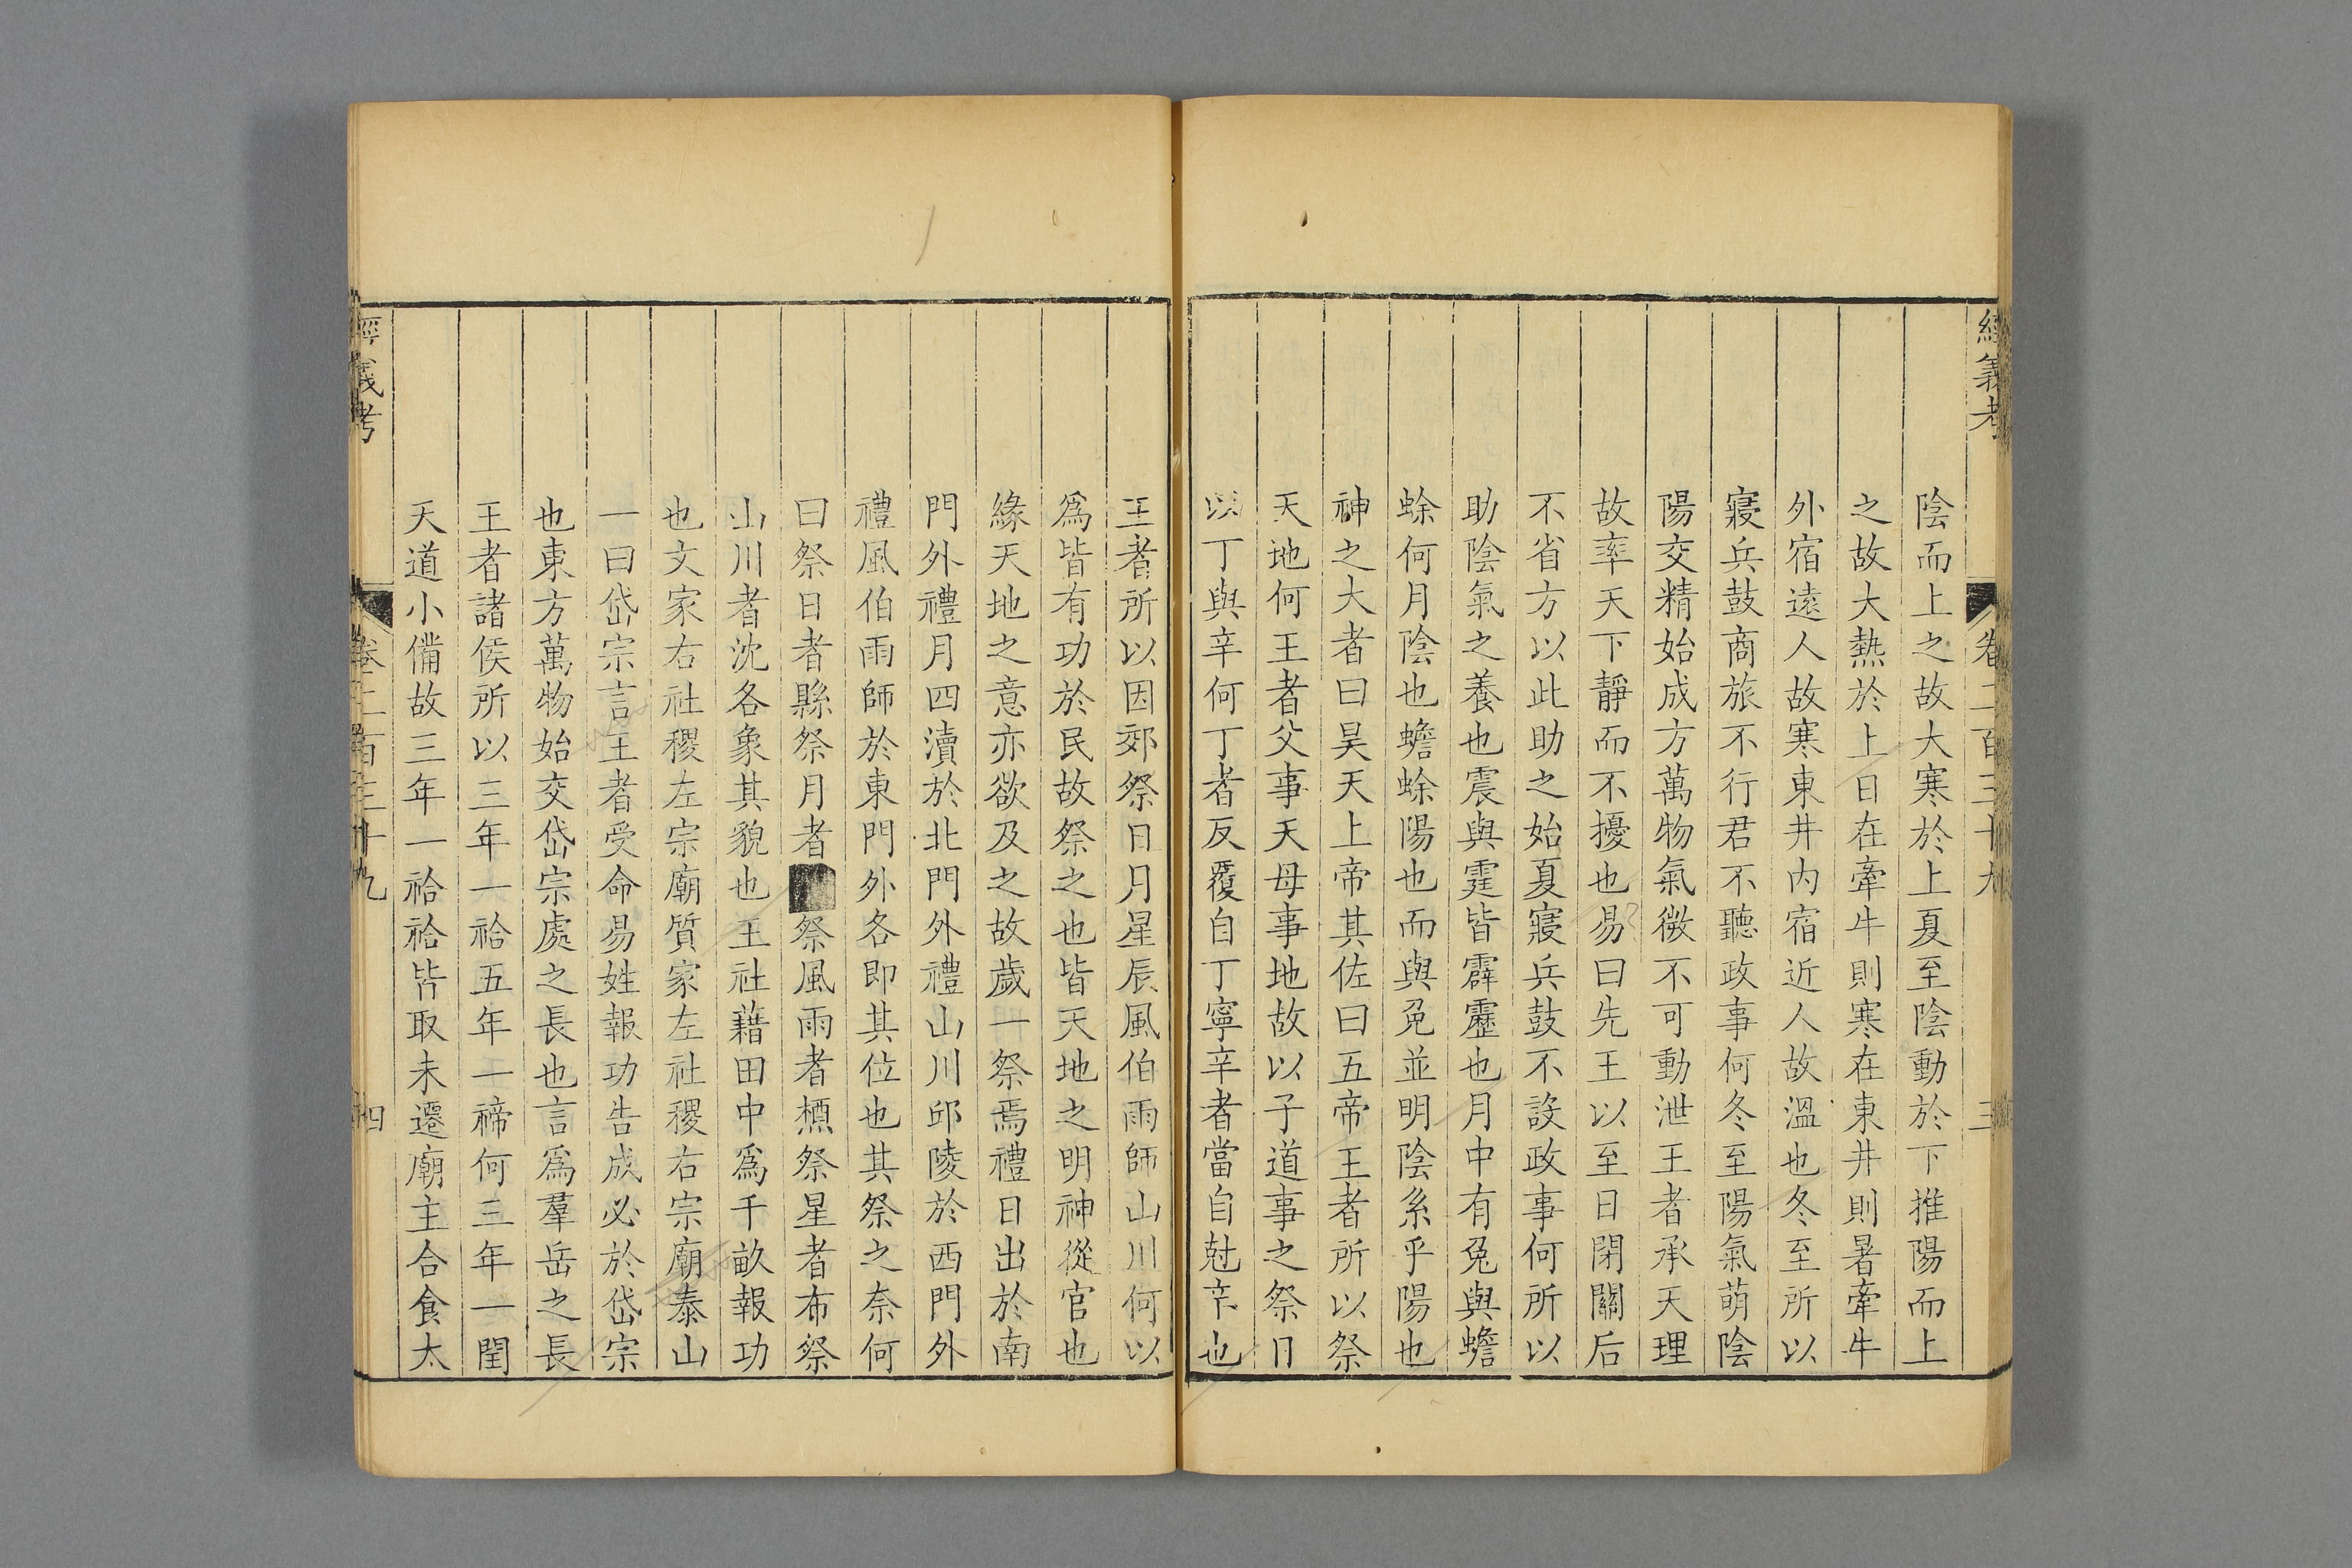 經義考 卷二百三十九 三
陰而上之故大寒於上夏至陰動於下推陽而上
之故大熱於上日在牽牛則寒在東井則暑牽牛
外宿遠人故寒東井內宿近人故溫也冬至所以
寢兵鼓商旅不行君不聽政事何冬至陽氣萌陰
陽交精始成方萬物氣微不可動泄王者承天理
故率天下靜而不擾也易曰先王以至日閉關后
不省方以此助之始夏寢兵鼓不設政事何所以
助陰氣之養也震與霆皆霹靂也月中有兔與蟾
蜍何月陰也蟾蜍陽也而與兔並明陰系乎陽也
神之大者曰昊天上帝其佐曰五帝王者所以祭
天地何王者父事天母事地故以子道事之祭日
以丁與辛何丁者反覆自丁寧辛者當自尅辛也
王者所以因郊祭日月星辰風伯雨師山川何以
爲皆有功於民故祭之也皆天地之明神從官也
緣天地之意亦欲及之故歲一祭焉禮日出於南
門外禮月四瀆於北門外禮山川邱陵於西門外
禮風伯雨師於東門外各即其位也其祭之奈何
曰祭日者縣祭月者祭風雨者槱祭星者布祭
山川者沈各象其貌也王社藉田中爲千畝報功
也文家右社稷左宗廟質家左社稷右宗廟泰山
一曰岱宗言王者受命易姓報功告成必於岱宗
也東方萬物始交岱宗處之長也言爲羣岳之長
王者諸侯所以三年一祫五年一禘何三年一閏
天道小備故三年一祫祫皆取未遷廟主合食太
經義考 卷二百三十九 四